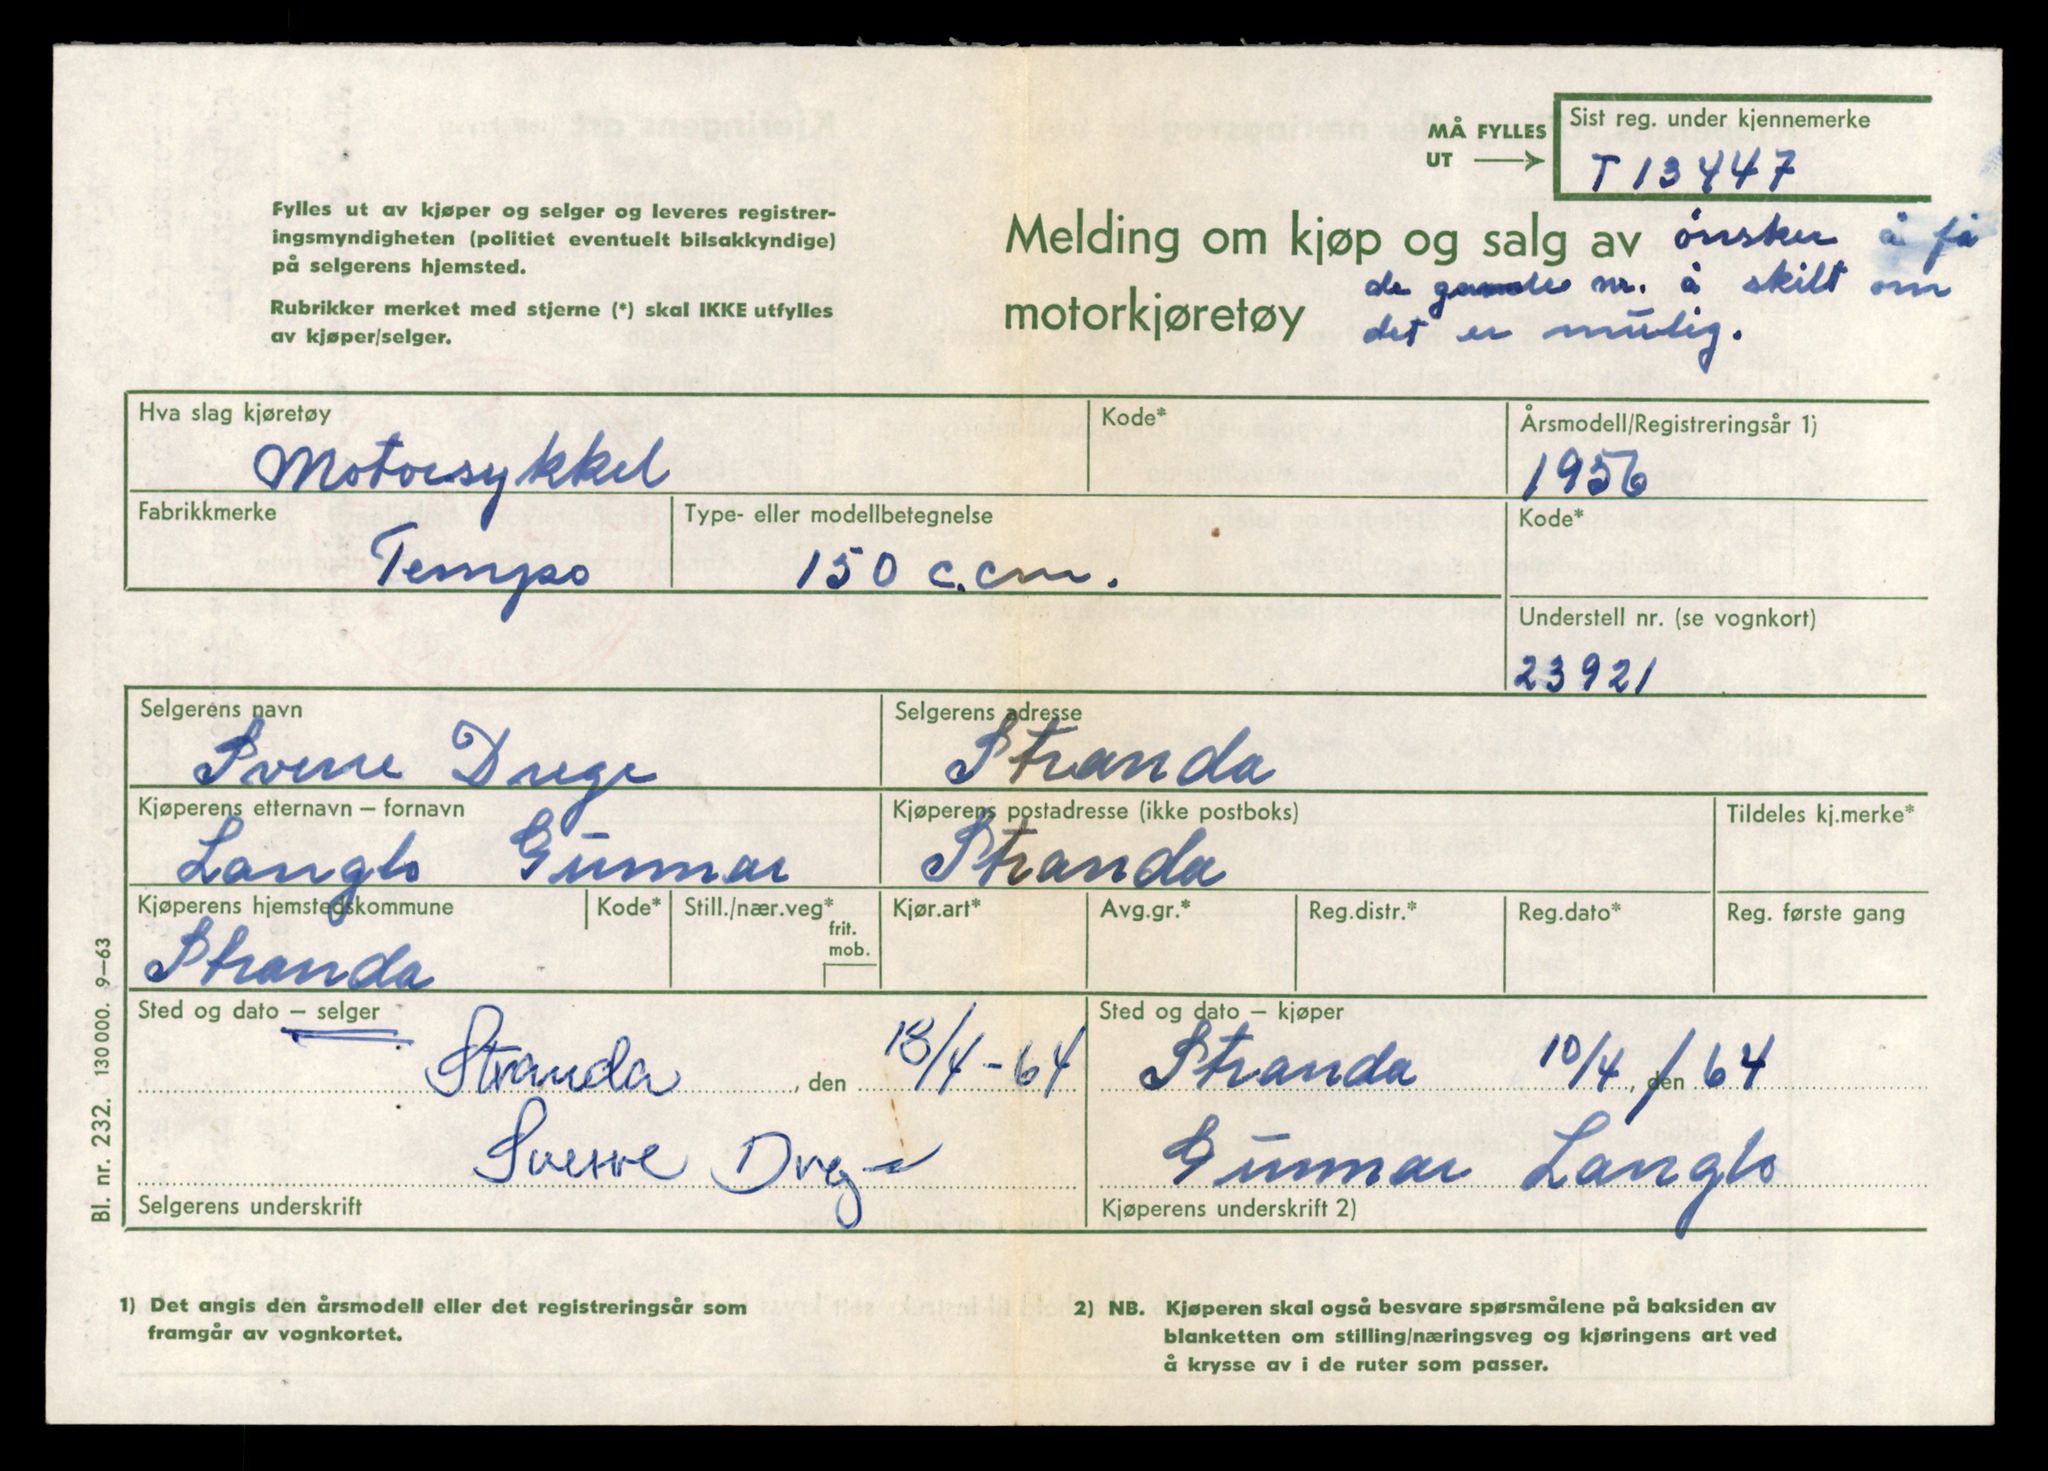 MÅ FYLLES
UT
Sist reg. under kjennemerke
T 13447
Fylles ut av kjøper og selger og leveres registrer-
ingsmyndigheten (politiet eventuelt bilsakkyndige)
på selgerens hjemsted.
Rubrikker merket med stjerne (*) skal IKKE utfylles
av kjøper/selger.
Melding om kjøp og salg av
motorkjøretøy
ønsker å få
de gamle nr. å skilt om
det er mulig.
Hva slag kjøretøy
Motorsykkel
Kode*
Årsmodell/Registreringsår 1)
1956
Fabrikkmerke
Tempo
Type- eller modellbetegnelse
150 c.cm.
Kode*
Understell nr. (se vognkort)
23921
Selgerens navn
Sverre Drege
Selgerens adresse
Stranda
Kjøperens etternavn – fornavn
Langlo Gunnar
Kjøperens postadresse (ikke postboks)
Stranda
Tildeles kj.merke*
Kjøperens hjemstedskommune
Stranda
Kode*
Still./nær.veg*
frit.
mob.
Kjør.art*
Avg.gr.*
Reg.distr.*
Reg.dato*
Reg. første gang
Sted og dato – selger
Stranda, den 18/4-64
Sverre Drege
Selgerens underskrift
Sted og dato – kjøper
Stranda 10/4, den / 64
Gunnar Langlo
Kjøperens underskrift 2)
Bl. nr. 232. 130000. 9–63
1) Det angis den årsmodell eller det registreringsår som
framgår av vognkortet.
2) NB. Kjøperen skal også besvare spørsmålene på baksiden av
blanketten om stilling/næringsveg og kjøringens art ved
å krysse av i de ruter som passer.